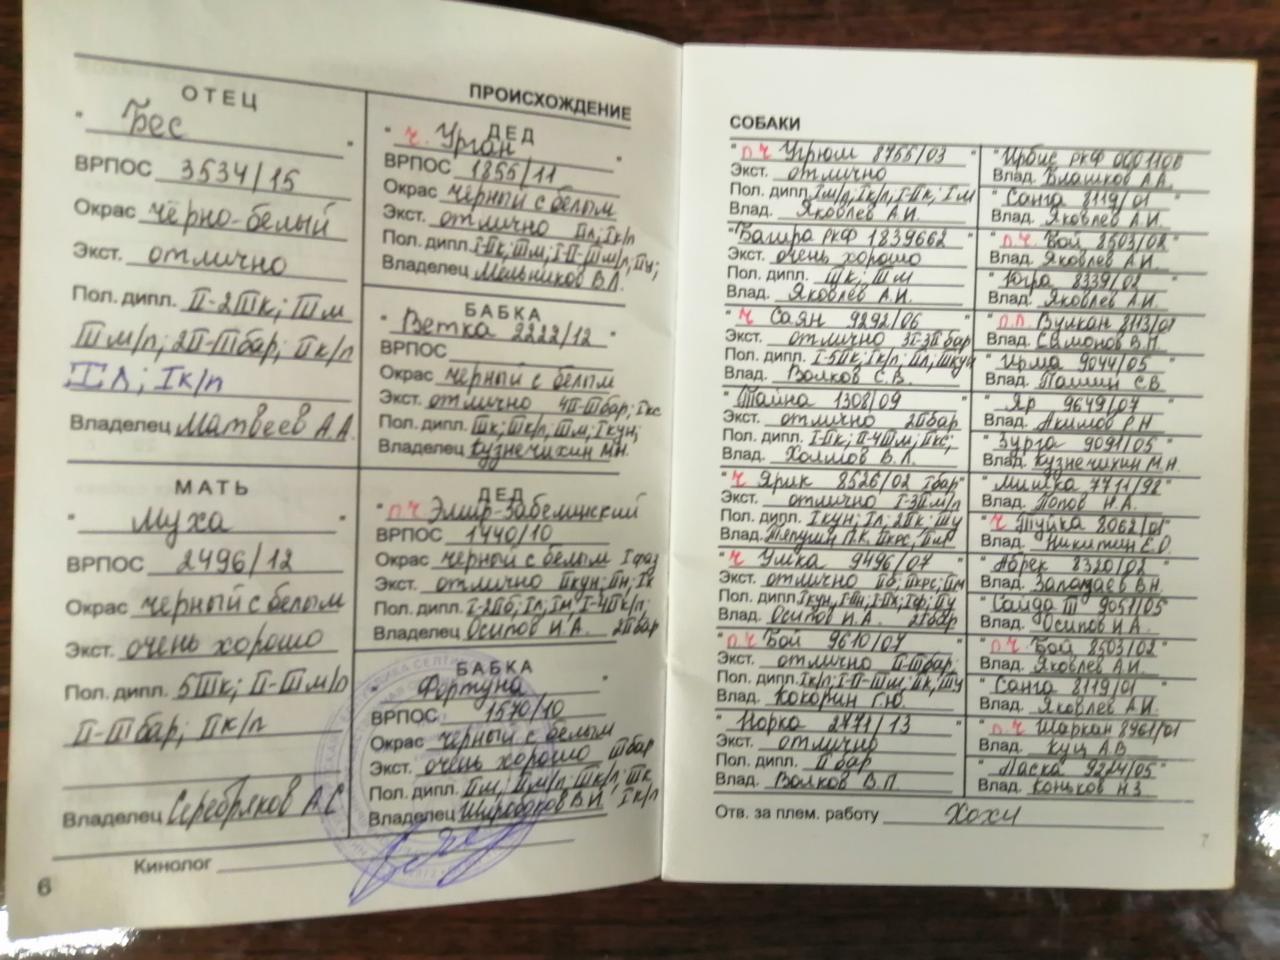 ПРОИСХОЖДЕНИЕ
ОТЕЦ
" Бес "
ВРПОС 3534/15
Окрас чёрно-белый
Экст. отлично
Пол. дипл. II-2IIIк; IIIм
IIIм/п; 2II-IIIбар; IIк/п
I л; Iк/п
Владелец Матвеев А.А.
МАТЬ
" Муха "
ВРПОС 2496/12
Окрас чёрный с белым
Экст. очень хорошо
Пол. дипл. 5IIIк; II-IIIм/п
II-IIIбар; IIк/п
Владелец Серебряков А.С.
Кинолог
6
ДЕД
" ч. Урган "
ВРПОС 1855/11
Окрас чёрный с белым
Экст. отлично IIл; Iк/п
Пол. дипл. I-IIк; IIIм; I-II-IIIм/п; IIу;
Владелец Мельников В.Л.
БАБКА
" Ветка 2222/12 "
ВРПОС
Окрас чёрный с белым
Экст. отлично 4II-IIIбар; Iкс
Пол. дипл. IIIк; IIIк/п; IIIм; Iкун;
Владелец Кузнечихин М.Н.
ДЕД
" п.ч Эмир-Забелинский
ВРПОС 1440/10
Окрас чёрный с белым
Экст. отлично IIкун; IIн; Iк
Пол. дипл. I-2IIб; Iл; Iм; I-4IIк/п;
Владелец Осипов И.А. 2IIбар
БАБКА
" Фортуна "
ВРПОС 1570/10
Окрас чёрный с белым
Экст. очень хорошо IIIбар
Пол. дипл. IIм; IIм/п; IIIк/п; IIIк
Владелец Широбоков В.И. Iк/п
СОБАКИ
" п.ч Угрюм 8755/03 "
Экст. отлично
Пол. дипл. Iм/п; Iк/п; I-IIк; Iм
Влад. Яковлев А.И.
"Багира ркф 1839662
Экст. очень хорошо
Пол. дипл. IIIк; IIIм
Влад. Яковлев А.И.
" ч Саян 9292/06 "
Экст. отлично 3I-3IIбар
Пол. дипл. I-5IIк; Iк/п; IIл; IIIкун
Влад. Волков С.В.
" Тайна 1308/09 "
Экст. отлично 2IIбар
Пол. дипл. I-IIк; II-4IIIм; IIкс;
Влад.
" ч Ярик 8526/02 Iбар"
Экст. отлично I-3IIм/п
Пол. дипл. Iкун; Iл; 2IIк; IIIу
Влад.
" ч Умка 9496/07 "
Экст. отлично IIб; IIкрс; IIм
Пол. дипл. Iкун, I-IIн; I-IIк; Iф; IIу
Влад. Осипов И.А. 2IIбар
" п.ч Бой 9610/07 "
Экст. отлично II-IIIбар;
Пол. дипл. Iк/п; I-II-IIIм; IIк, IIIу
Влад. Кокорин Г.Ю.
" Норка 2771/13 "
Экст. отлично
Пол. дипл. II бар
Влад. Волков В.П.
" Ирбис ркф 0001100
Влад. Блашков А.А.
" Санга 8119/01 "
Влад. Яковлев А.И.
" п.ч. Бой 8503/02 "
Влад. Яковлев А.И.
" Югра 8339/02 "
Влад. Яковлев А.И.
" п.п. Вулкан 8113/01
Влад. Самонов В.П.
" Ирма 9044/05 "
Влад. С.В.
" Яр 9649/07 "
Влад. Акимов Р.Н
" Зурга 9091/05 "
Влад. Кузнечихин М.Н.
" Мишка 7711/98 "
Влад. Попов Н.А.
" ч Туйка 8062/01"
Влад. Никитин Е.О.
" Абрек 8320/02 "
Влад. В.Н.
" Сайда III 9051/05
Влад. Осипов И.А.
" п.ч Бой 8503/02 "
Влад. Яковлев А.И.
" Санга 8119/01 "
Влад. Яковлев А.И.
" п.ч Шаркан 8961/01
Влад. Куц А.В
" Ласка 9224/05 "
Влад. Коньков Н.З.
Отв. за плем. работу
7